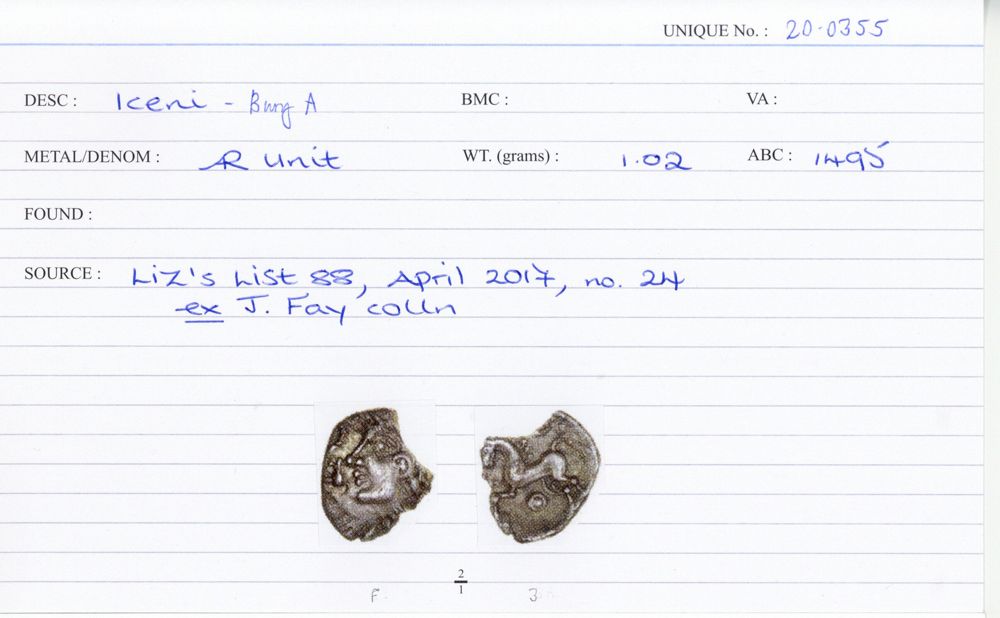 UNIQUE No. : 20-0355
DESC : Iceni - Bury A BMC : VA :
METAL/DENOM : AR Unit WT. (grams) : 1.02 ABC : 1495
FOUND :
SOURCE : Liz's List 88, April 2017, no. 24
ex J. Fay colln
2
1
F 3